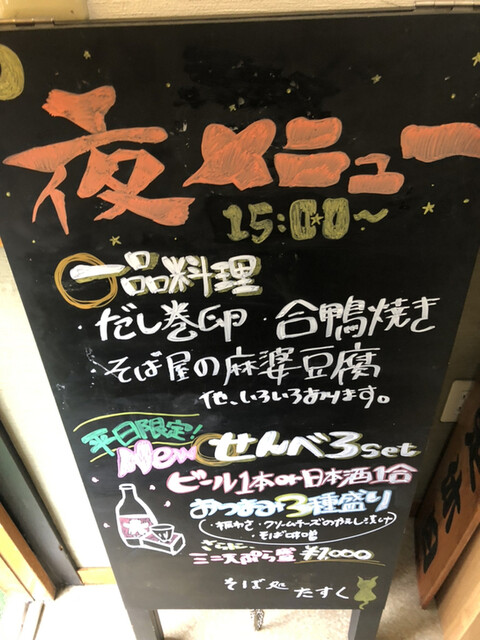 夜メニュー
15:00~
一品料理
・だし巻卵・合鴨焼き
・そば屋の麻婆豆腐
他、いろいろあります。
平日限定!
New せんべろset
ビール1本or日本酒1合
おつまみ3種盛り
・板わさ・クリームチーズのわさび漬け
・そば味噌
さらに
ミニ天ぷら盛 ¥1,000
そば処 たすく